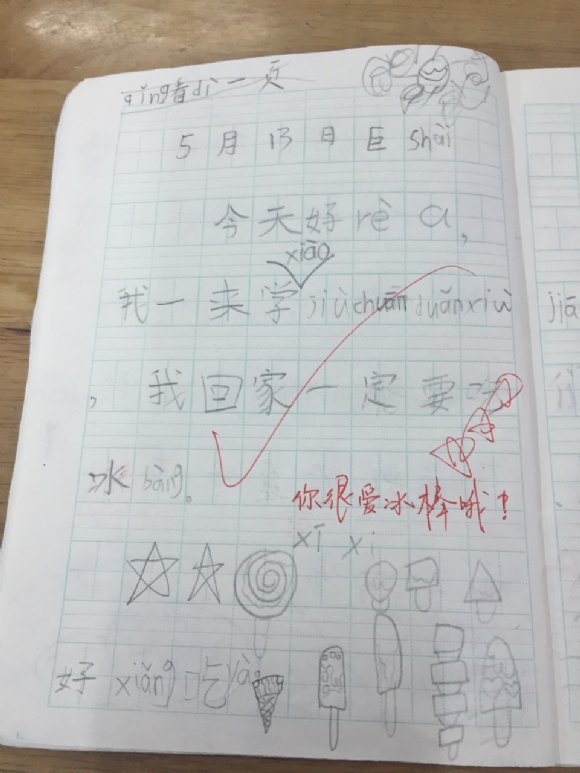 qing看dì一页
5月13日 巨shài
今天好rè a,
我一来学xiào jiù chuān duǎnxiù
,我回家一定要吃
冰bàng。
你很爱冰棒哦!
xī xi
好xiǎng吃yà